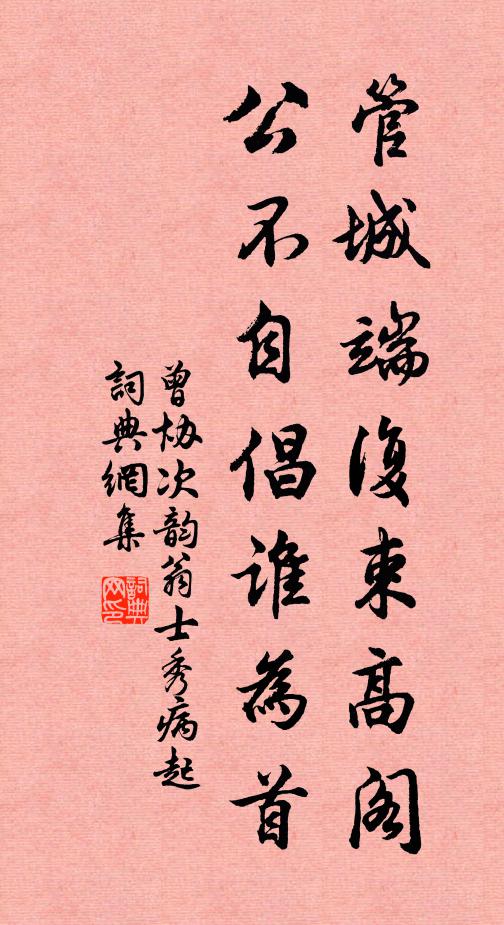 管城端復束高閣
公不自倡誰為首
曾協次韵翁士秀病起
詞典網集
詞典网印